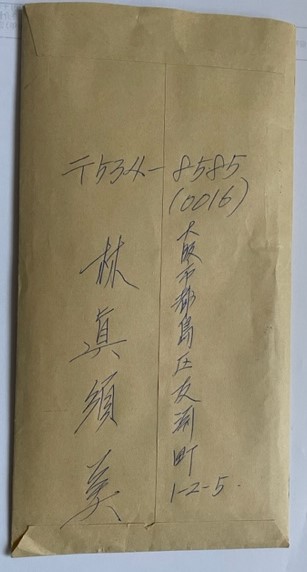 〒534-8585
(0016)
大阪市都島区友渕町
1-2-5.
林眞須美